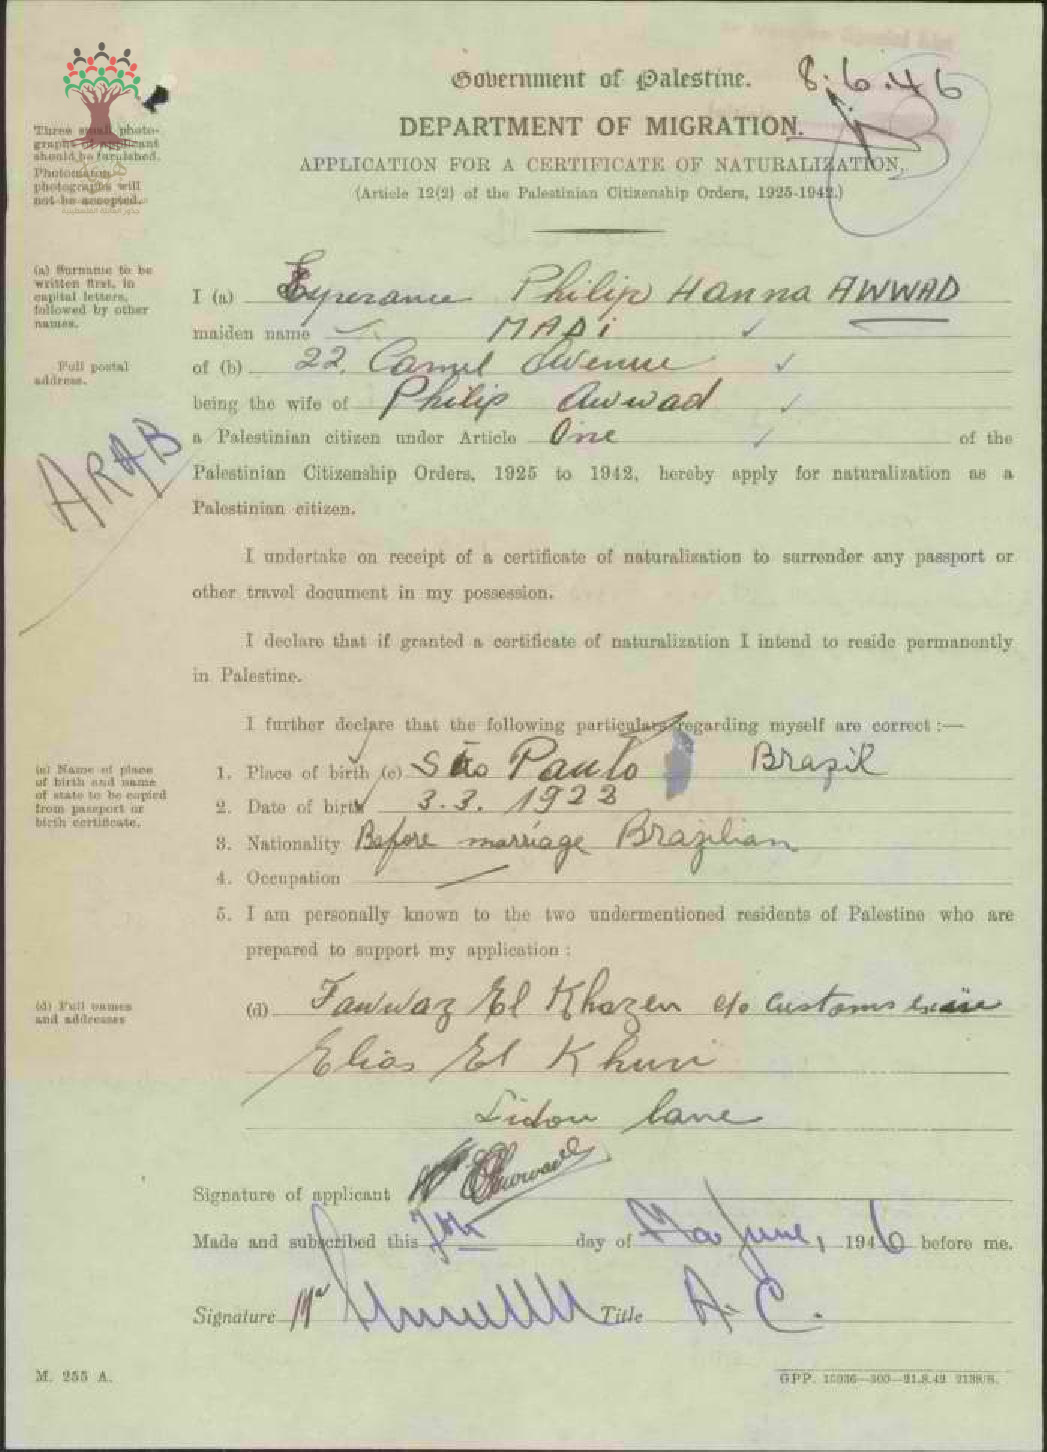 Government of Palestine.
8.6.46
DEPARTMENT OF MIGRATION.
APPLICATION FOR A CERTIFICATE OF NATURALIZATION,
(Article 12(2) of the Palestinian Citizenship Orders, 1925-1942.)
Three small photo-
graphs of applicant
should be furnished.
Photomaton
photographs will
not be accepted.
(a) Surname to be
written first, in
capital letters,
followed by other
names.
I (a) Esperance Philip Hanna AWWAD
maiden name MADi
Full postal
address.
of (b) 22, Carmel Avenue
being the wife of Philip Awwad
ARAB
a Palestinian citizen under Article One of the
Palestinian Citizenship Orders, 1925 to 1942, hereby apply for naturalization as a
Palestinian citizen.
I undertake on receipt of a certificate of naturalization to surrender any passport or
other travel document in my possession.
I declare that if granted a certificate of naturalization I intend to reside permanently
in Palestine.
I further declare that the following particulars regarding myself are correct :—
(c) Name of place
of birth and name
of state to be copied
from passport or
birth certificate.
1. Place of birth (c) São Paulo Brazil
2. Date of birth 3.3. 1923
3. Nationality Before marriage Brazilian
4. Occupation
5. I am personally known to the two undermentioned residents of Palestine who are
prepared to support my application :
(d) Full names
and addresses
(d) Fawwaz El Khazen c/o Customs
Elias El Khuri
lane
Signature of applicant
Made and subscribed this 7th day of June, 1946 before me.
Signature Title A. C.
M. 255 A.
GPP.